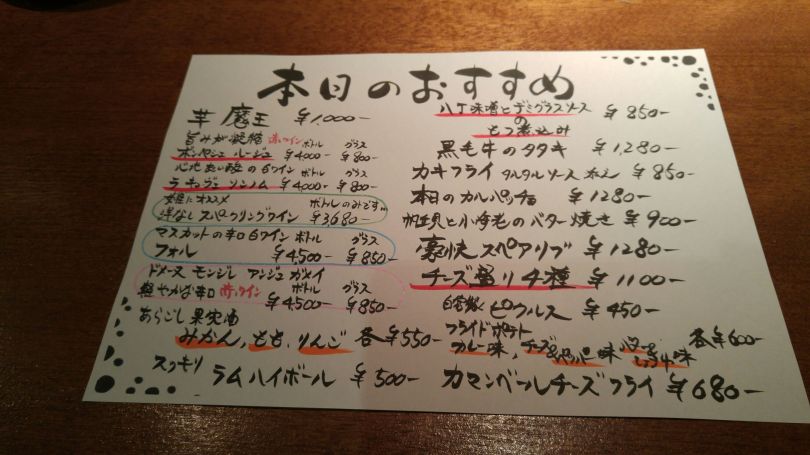 本日のおすすめ
芋 魔王 ¥1,000-
旨みが凝縮 赤ワイン ボトル グラス
ボンヴァン ルージュ ¥4,000- ¥800-
心地良い酸の白ワイン ボトル グラス
ラ キュヴェ ¥4,000- ¥800-
女性にオススメ ボトルのみです
洋なしスパークリングワイン ¥3,680-
マスカットの辛口白ワイン ボトル グラス
フォル ¥4,500- ¥850-
ドメーヌ モンジレ アンジュ ガメイ
軽やかな辛口 赤ワイン ボトル グラス
¥4,500- ¥850-
あらごし果実酒
みかん、もも、りんご 各¥550-
スッキリ ラムハイボール ¥500-
八丁味噌とデミグラスソース
の ¥850-
もつ煮込み
黒毛牛のタタキ ¥1,280-
カキフライ タルタルソース添え ¥850-
本日のカルパッチョ ¥1280-
帆立貝と小海老のバター焼き ¥900-
豪快スペアリブ ¥1280-
チーズ盛り4種 ¥1100-
自家製 ピクルス ¥450-
フライドポテト
カレー味、チーズ&ペッパー味 バターしょうゆ味 各¥600-
カマンベールチーズフライ ¥680-